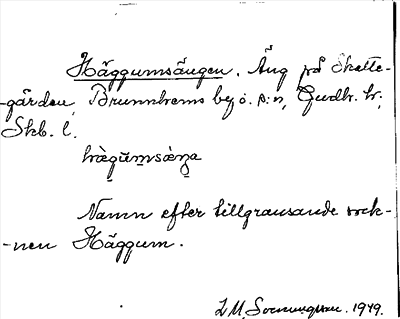 Häggumsängen. Äng på Skatte-
-gården, Brunnhems by o. s:n, Gudh. hr;
Skb. l.
hæ̀gu̅m̥sæŋa
Namn efter tillgränsande sock-
-nen Häggum.
1949.